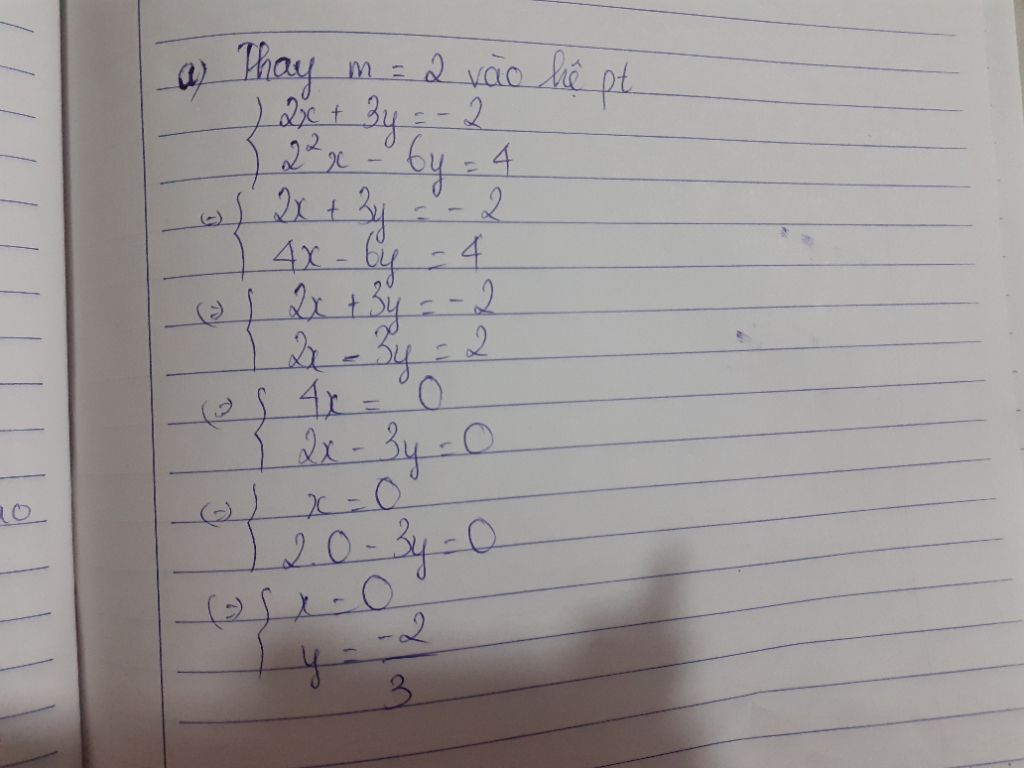 a) Thay m = 2 vào hệ pt
{ 2x + 3y = - 2
2²x - 6y = 4
(=) { 2x + 3y = - 2
4x - 6y = 4
(=) { 2x + 3y = - 2
2x - 3y = 2
(=) { 4x = 0
2x - 3y = 0
(=) { x = 0
2.0 - 3y = 0
(=) { x = 0
y = -2/3